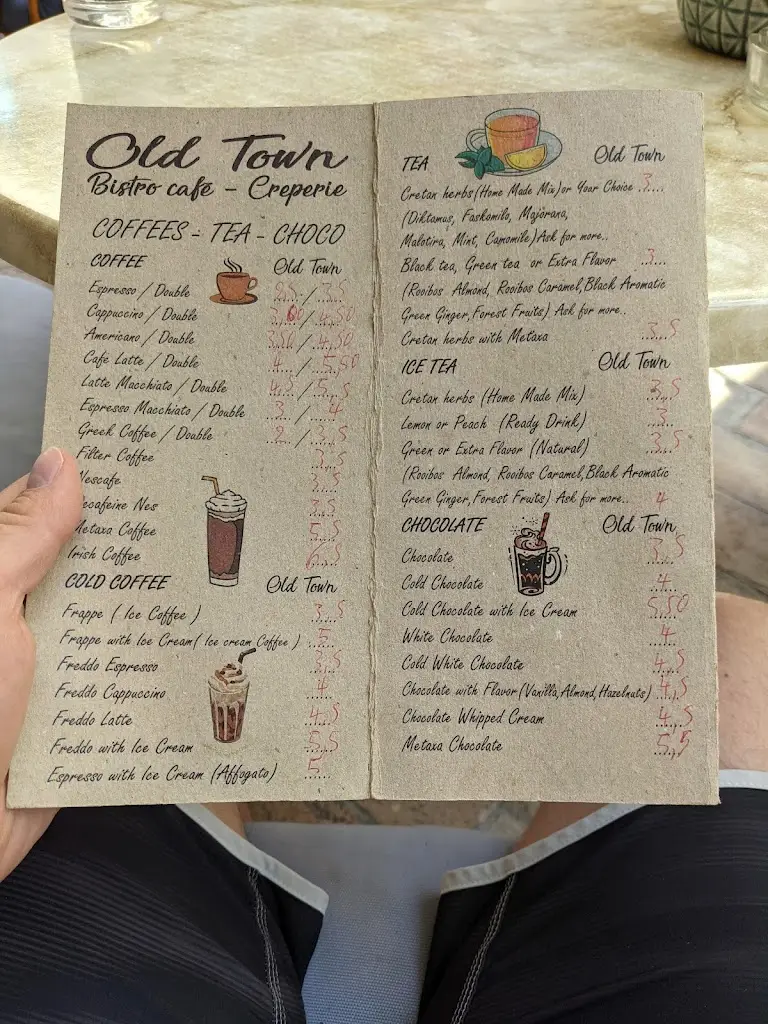 Old Town
Bistro cafe - Creperie
COFFEES - TEA - CHOCO
COFFEE Old Town
Espresso / Double 2,5 / 3,5
Cappuccino / Double 3,60 / 4,50
Americano / Double 3,50 / 4,50
Cafe Latte / Double 4 / 5,50
Latte Macchiato / Double 4,5 / 5,5
Espresso Macchiato / Double 3 / 4
Greek Coffee / Double 2 / 3,5
Filter Coffee 3,5
Nescafe 3,5
ecafeine Nes 3,5
Metaxa Coffee 5,5
Irish Coffee 6,5
COLD COFFEE Old Town
Frappe ( Ice Coffee ) 3,5
Frappe with Ice Cream( Ice cream Coffee ) 5
Freddo Espresso 3,5
Freddo Cappuccino 4
Freddo Latte 4,5
Freddo with Ice Cream 5,5
Espresso with Ice Cream (Affogato) 5
TEA Old Town
Cretan herbs(Home Made Mix)or Your Choice 3
(Diktamus, Faskomilo, Majorana,
Malotira, Mint, Camomile)Ask for more..
Black tea, Green tea or Extra Flavor 3
(Rooibos Almond, Rooibos Caramel,Black Aromatic
Green Ginger,Forest Fruits) Ask for more..
Cretan herbs with Metaxa 3,5
ICE TEA Old Town
Cretan herbs (Home Made Mix) 3,5
Lemon or Peach (Ready Drink) 3
Green or Extra Flavor (Natural) 3,5
(Rooibos Almond, Rooibos Caramel,Black Aromatic
Green Ginger,Forest Fruits) Ask for more.. 4
CHOCOLATE Old Town
Chocolate 3,5
Cold Chocolate 4
Cold Chocolate with Ice Cream 5,50
White Chocolate 4
Cold White Chocolate 4,5
Chocolate with Flavor(Vanilla,Almond,Hazelnuts) 4,5
Chocolate Whipped Cream 4,5
Metaxa Chocolate 5,5